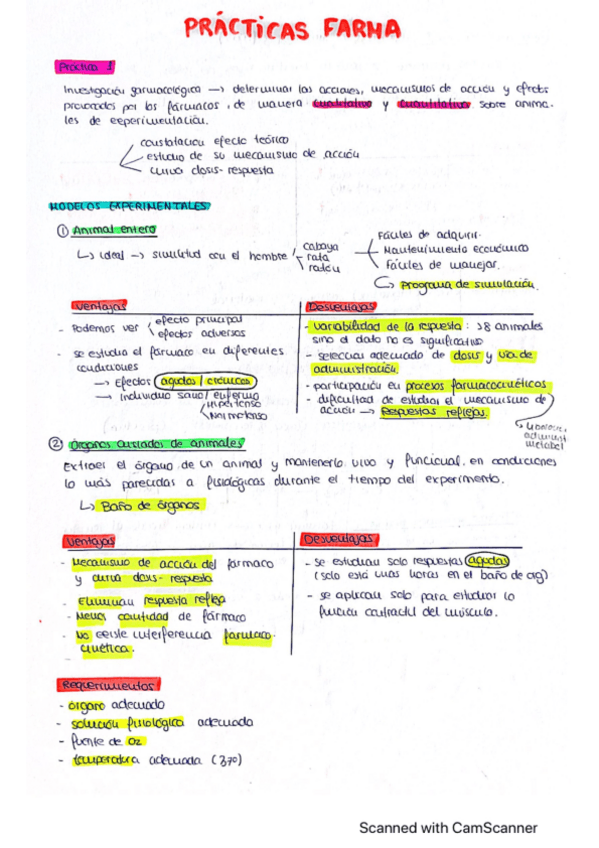 PRÁCTICAS FARMA
Práctica 1
Investigación farmacológica → determinar las acciones, mecanismos de acción y efectos
provocados por los fármacos, de manera cualitativa y cuantitativa sobre anima-
les de experimentación.
constatación efecto teórico
estudio de su mecanismo de acción
curva dosis-respuesta
MODELOS EXPERIMENTALES
① Animal entero
↳ ideal → similitud con el hombre
cobaya
rata
ratón
Fáciles de adquirir.
Mantenimiento económico
Fáciles de manejar.
↳ Programa de simulación
Ventajas
- Podemos ver
efecto principal
efectos adversos
- se estudia el fármaco en diferentes
condiciones
→ Efectos agudos / crónicos
→ Individuo sano / enfermo
Hipertenso
Normotenso
Desventajas
- Variabilidad de la respuesta: >8 animales
sino el dato no es significativo
- selección adecuada de dosis y vía de
administración.
- participación en procesos farmacocinéticos
- dificultad de estudiar el mecanismo de
acción → Respuestas reflejas.
② Órganos aislados de animales
Extraer el órgano de un animal y mantenerlo vivo y funcional en condiciones
lo más parecidas a fisiológicas durante el tiempo del experimento.
↳ Baño de órganos
Ventajas
- Mecanismo de acción del fármaco
y curva dosis-respuesta
- Eliminan respuesta refleja
- Menos cantidad de fármaco
- No existe interferencia farmaco-
cinética.
Desventajas
- se estudian solo respuestas agudas
(solo está unas horas en el baño de org)
- se aplican solo para estudiar la
función contráctil del músculo.
Requerimientos
- órgano adecuado
- solución fisiológica adecuada
- fuente de O2
- temperatura adecuada (37º)
Scanned with CamScanner